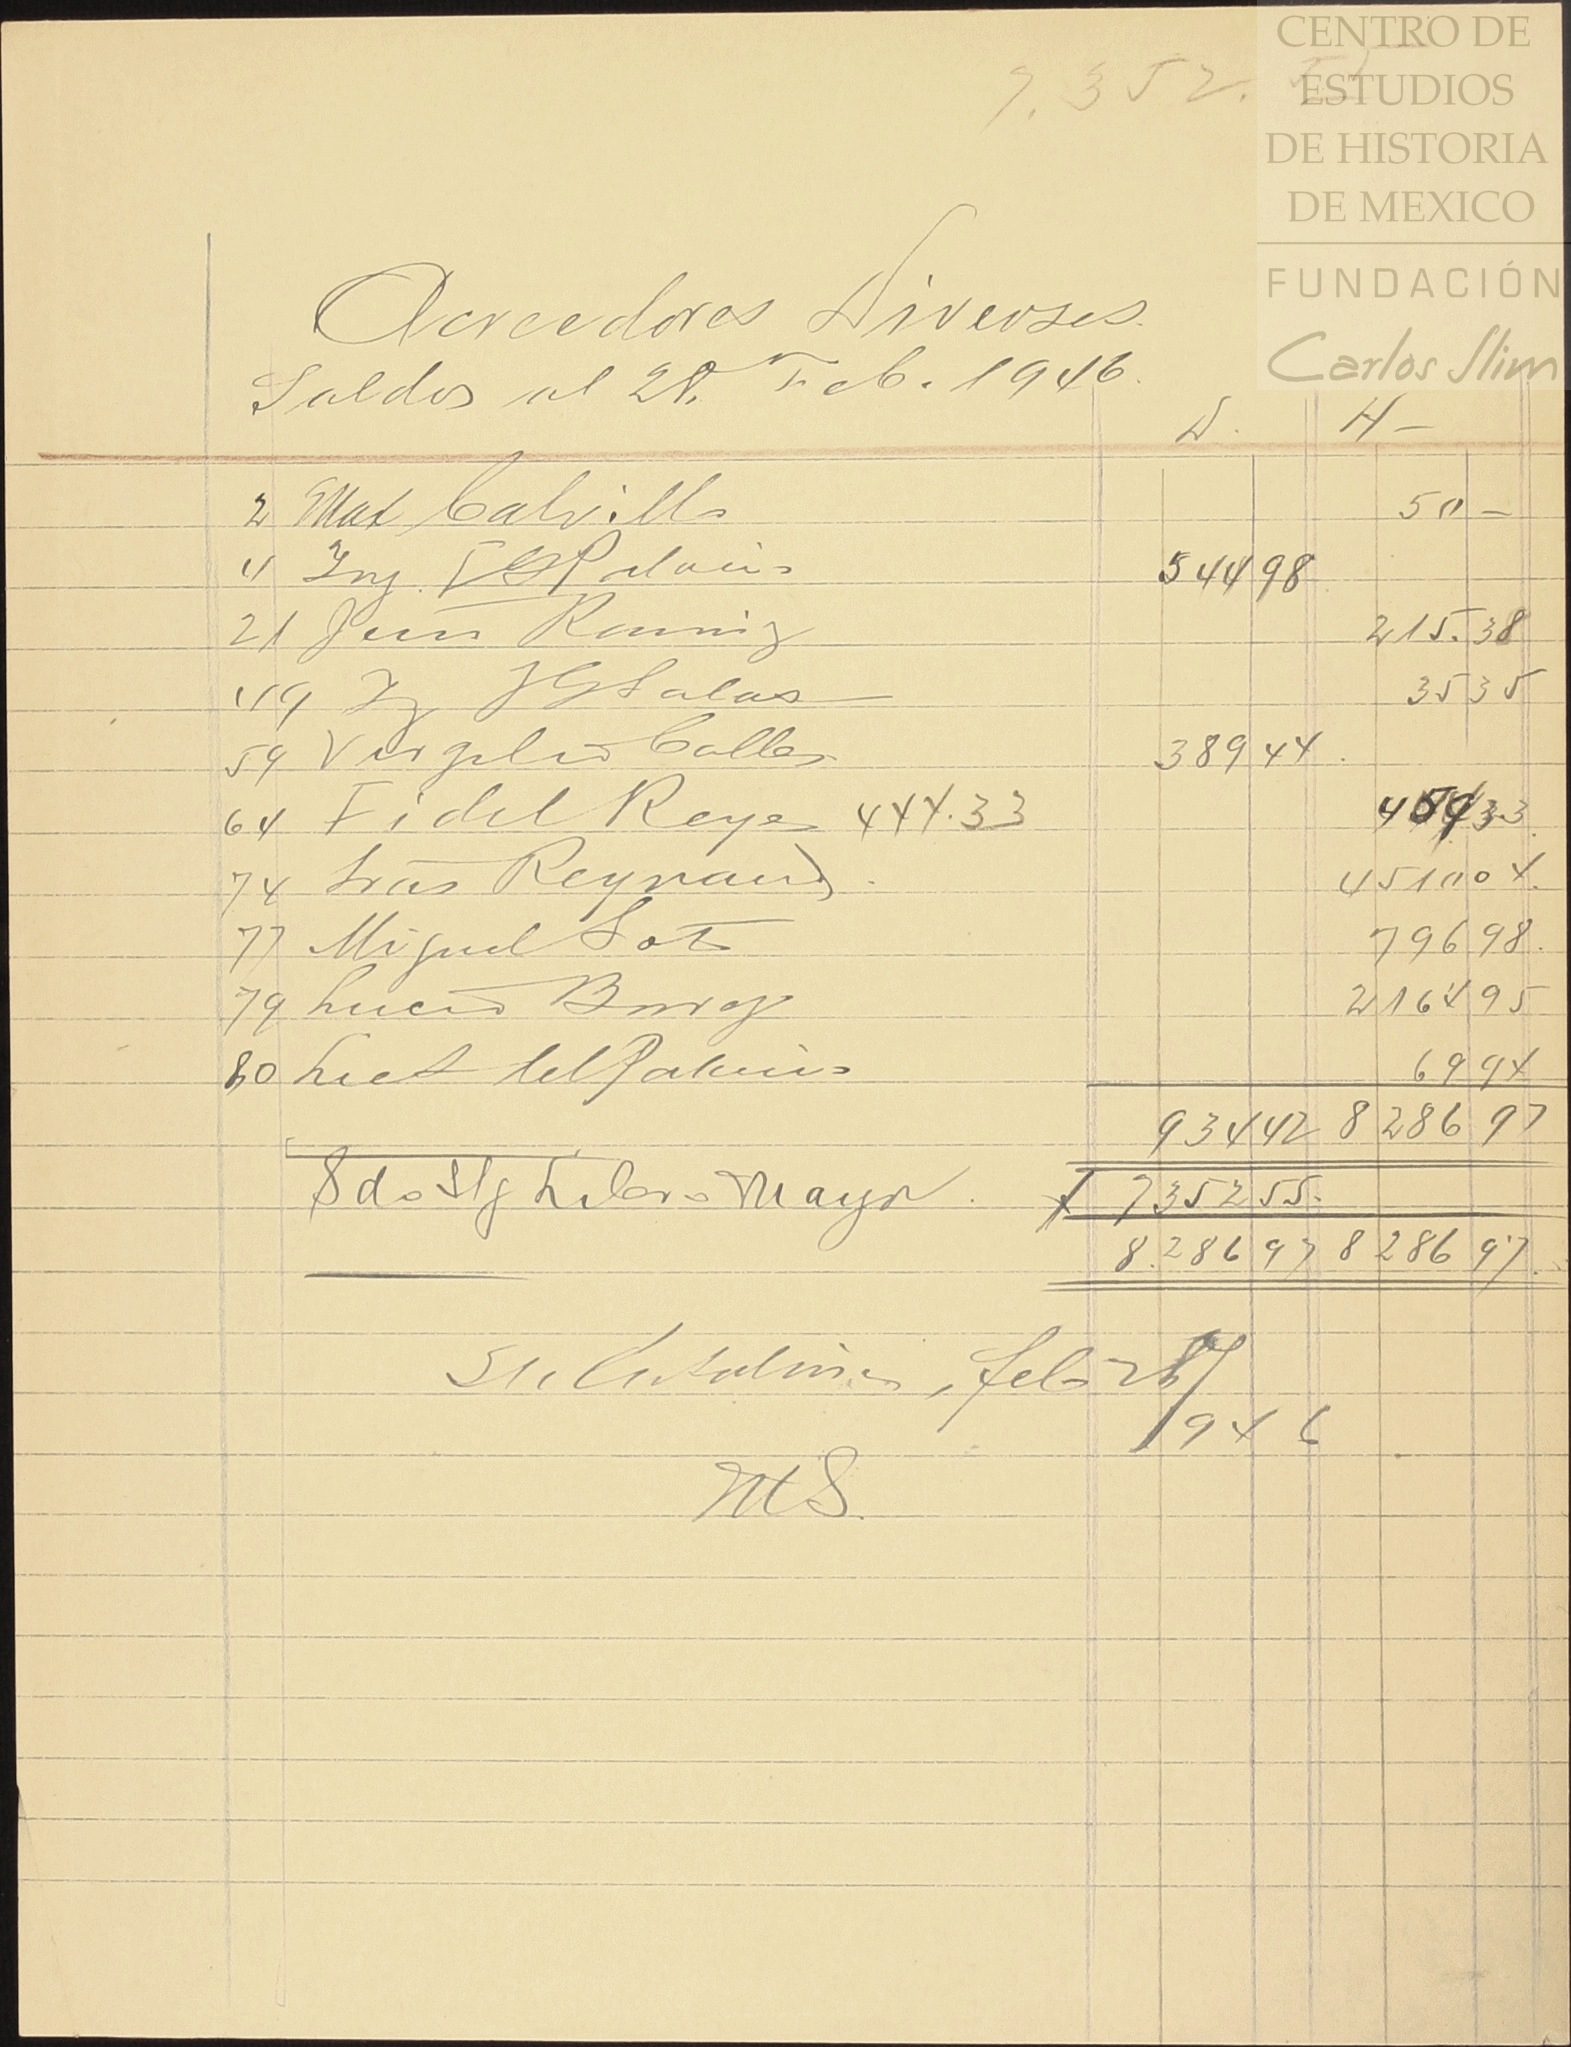 7.352.55
CENTRO DE
ESTUDIOS
DE HISTORIA
DE MEXICO
FUNDACIÓN
Carlos Slim
Acreedores Diversos.
Saldos al 28. Feb. 1946.
D. H-
2 Max Calvillo 50-
4 Ing. Palacios 544 98
21 Juan Ramirez 215.38
49 Ing J G Salas 35 35
59 Virgilio Calles 389 44.
64 Fidel Reyes 444.33 33.
74 Reynaud. 4510 04.
77 Miguel Soto 796 98.
79 Lucio 2164 95
80 Palacios 69 94
934 42 8 286 97
Sdo S/g Libro Mayor. 7352 55.
8.286 97 8 286 97.
Sta Catarina, feb 28/
1946
MS.